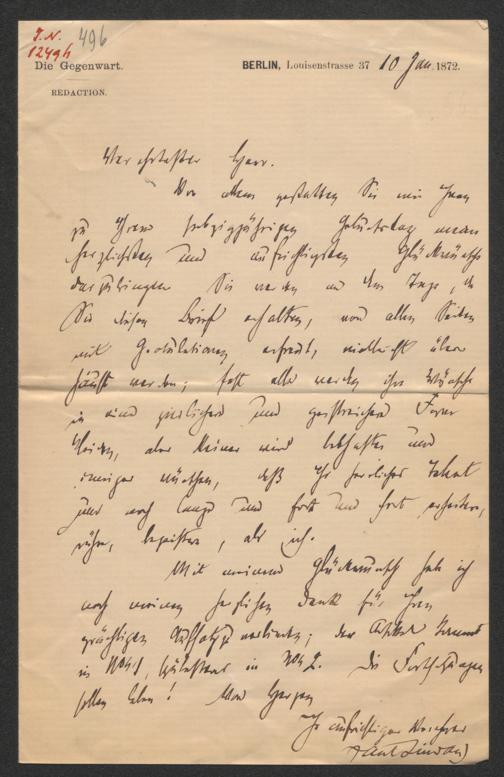 I.N.
12496
496
Die Gegenwart.
REDACTION.
BERLIN, Louisenstrasse 37 10 Jan 1872.
Verehrtester Herr.
Vor allem gestatten Sie mir Ihnen
zu Ihrem siebzigjährigen Geburtstag meine
herzlichsten und aufrichtigsten Glückwünsche
darzubringen. Sie werden an dem Tage, da
Sie diesen Brief erhalten, von allen Seiten
mit Gratulationen erfreut, vielleicht über
häuft werden; fast alle werden ihre Wünsche
in eine zierlichere und geistreichere Form
kleiden, aber Keiner wird lebhafter und
inniger wünschen, daß Ihr herrliches Talent
uns noch lange und fort und fort erheitere,
rühre, begeistere, als ich.
Mit meinem Glückwunsch habe ich
noch meinen herzlichen Dank für Ihren
prächtigen Aufsatz zu verbinden; der Artikel kommt
in No 1, spätestens in No 2. Die
sollen leben! Von Herzen
Ihr aufrichtiger Verehrer
Paul Lindau